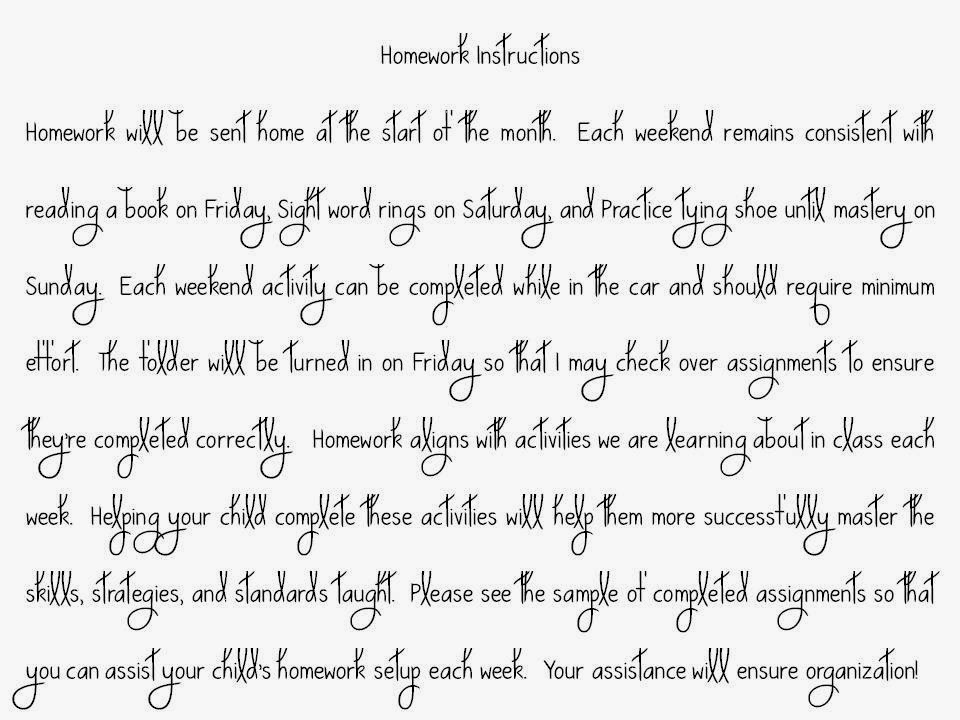 Homework Instructions
Homework will be sent home at the start of the month. Each weekend remains consistent with
reading a book on Friday, Sight word rings on Saturday, and Practice tying shoe until mastery on
Sunday. Each weekend activity can be completed while in the car and should require minimum
effort. The folder will be turned in on Friday so that I may check over assignments to ensure
they're completed correctly. Homework aligns with activities we are learning about in class each
week. Helping your child complete these activities will help them more successfully master the
skills, strategies, and standards taught. Please see the sample of completed assignments so that
you can assist your child's homework setup each week. Your assistance will ensure organization!